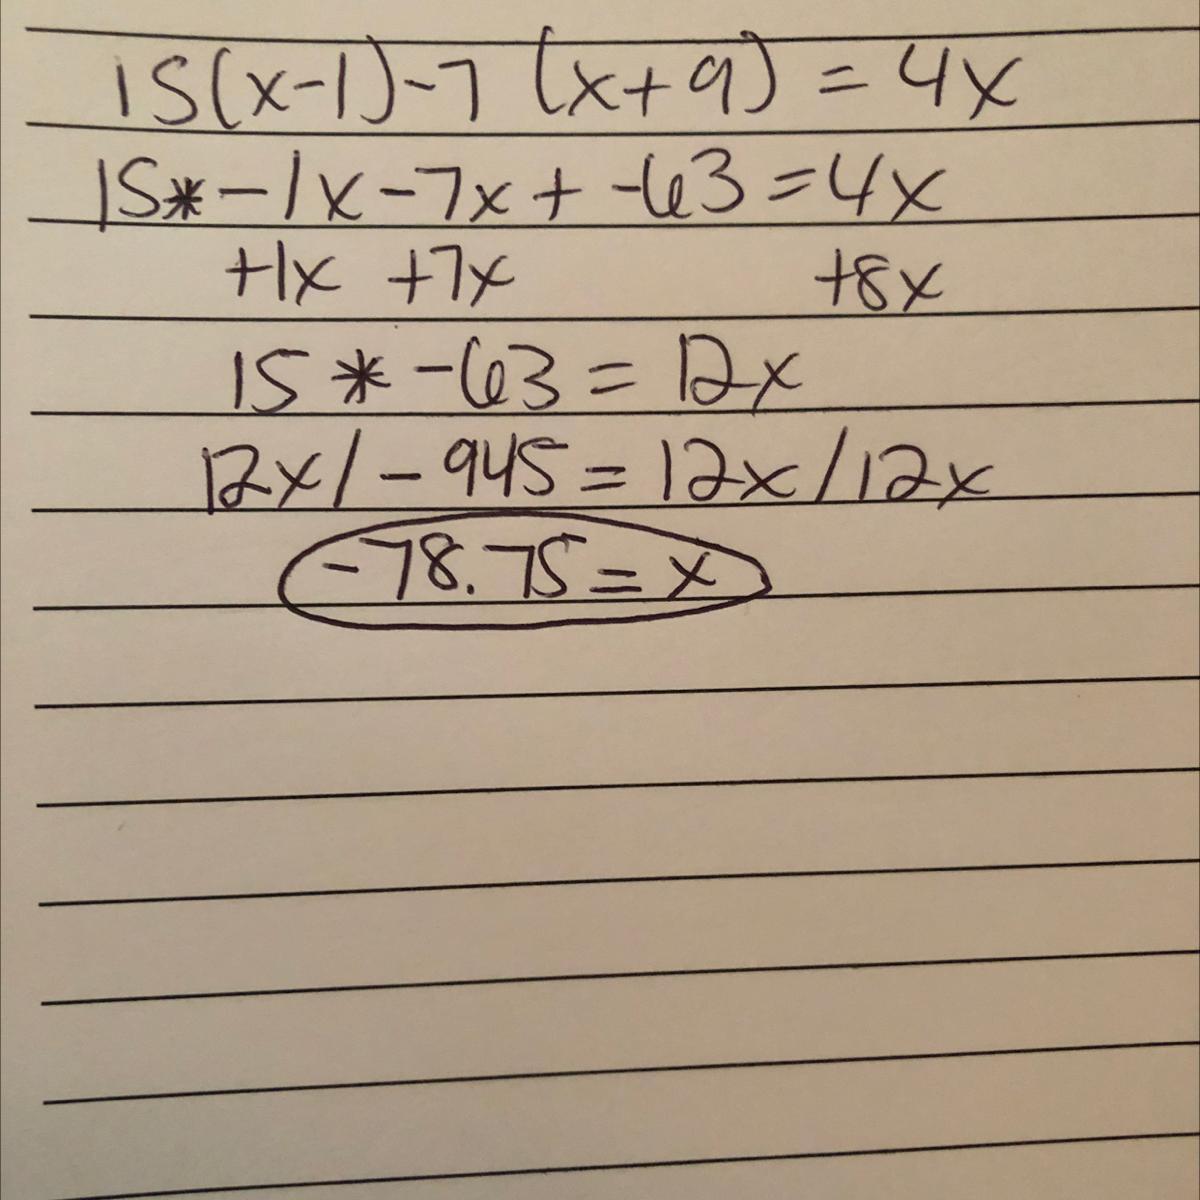 15(x-1)-7 (x+9) = 4x
15*-1x-7x+ -63=4x
+1x +7x +8x
15 * -63 = 12x
12x/-945 = 12x/12x
-78.75 = x